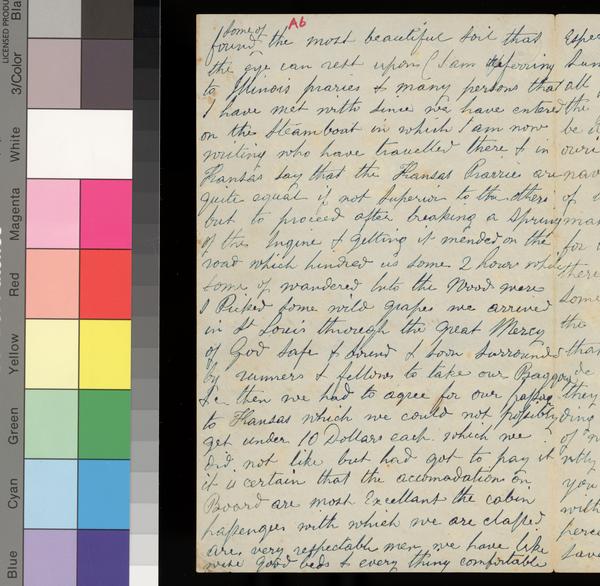 A6
some of
found the most beautiful soil that
the eye can rest upon (I am referring
to Illinois praries & many persons that
I have met with since we have entered
on the Steam boat in which I am now
writing who have travelled there & in
Kansas say that the Kansas Prairies are
quite equal if not Superior to the others
but to proceed after breaking a Spring
of the Engine & getting it mended on the
road which hindred us some 2 hours while
some of wandered Into the Wood were
I Picked some wild grapes we arrived
in St Louis through the Great Mercy
of God Safe & Sound & soon Surrounded
by runners & fellows to take our Baggage
&c then we had to agree for our passage
to Kansas which we could not possibly
get under 10 Dollars each which we
did not like but had got to pay it
it is certain that the accomodations on
Board are most Excellant the cabin
passengers with which we are classed
are very respectable men we have like
wise good beds & every thing comfortable
LICENSED PRODU
Bla
3/Color
White
Magenta
Red
Yellow
Green
Cyan
Blue